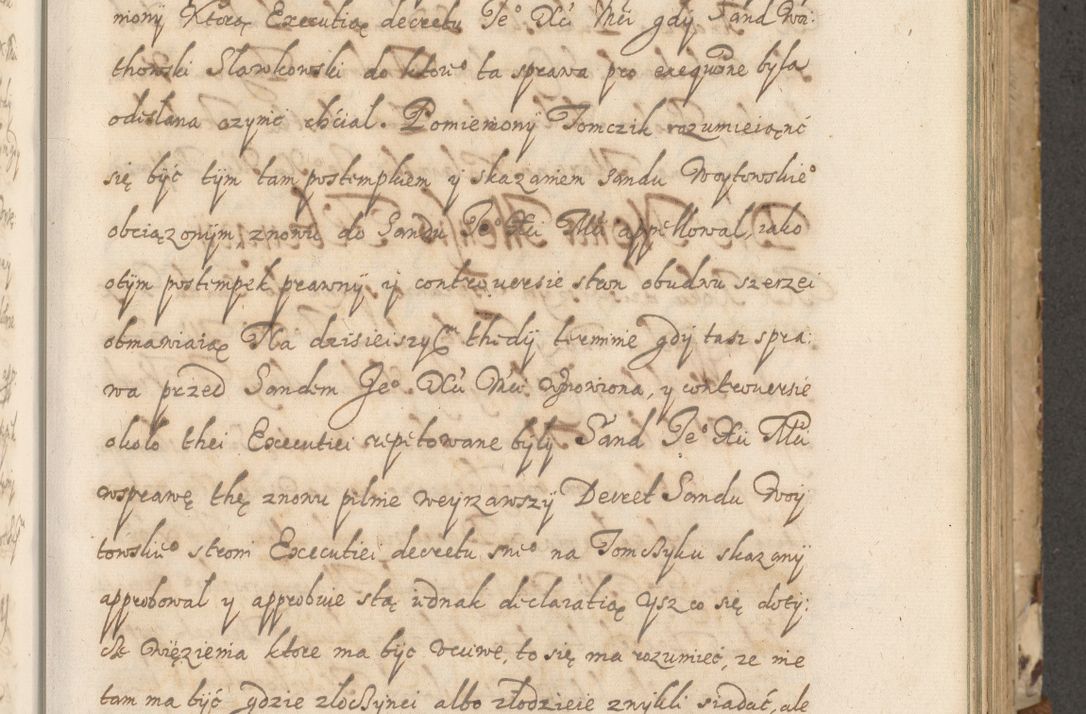 miony Ktorą Executią decretu Je° Xcú Mći gdy Sand Woi:
thowski Sławkowski do ktore° ta sprawa pro exequõne była
odesłana czynić chciał. Pomieniony Tomczik rozumieiąnć
się być tÿm tam postempkiem ẏ skazaniem sandu Woytowskie°
obciązonym, znowu do Sandu Je° Xći Mći appellował, iako
otÿm postempek prawnÿ ẏ controuersie stron obudwu szerzei
obmawiaią Na dzisieiszÿm thedÿ terminie gdÿ tasz spra:
wa przed Sandem Je° Xcú Mći wznowiona, y controuersie
około thei Executiei repetowane były Sand Je° Xći Mći
wsprawę thę znowu pilnie weyrzawszÿ Decret Sandu Woÿ
towskie° stroni Executiei decretu sne° na Tomcsyku skazanÿ
approbował y approbuie stą iednak declaratią ysz co się doty:
cze więzienia ktore ma byc vcciwe, to się ma rozumieć, ze nie
tam ma być gdzie złocsyncÿ albo złodzieie zwykli siadać, ale